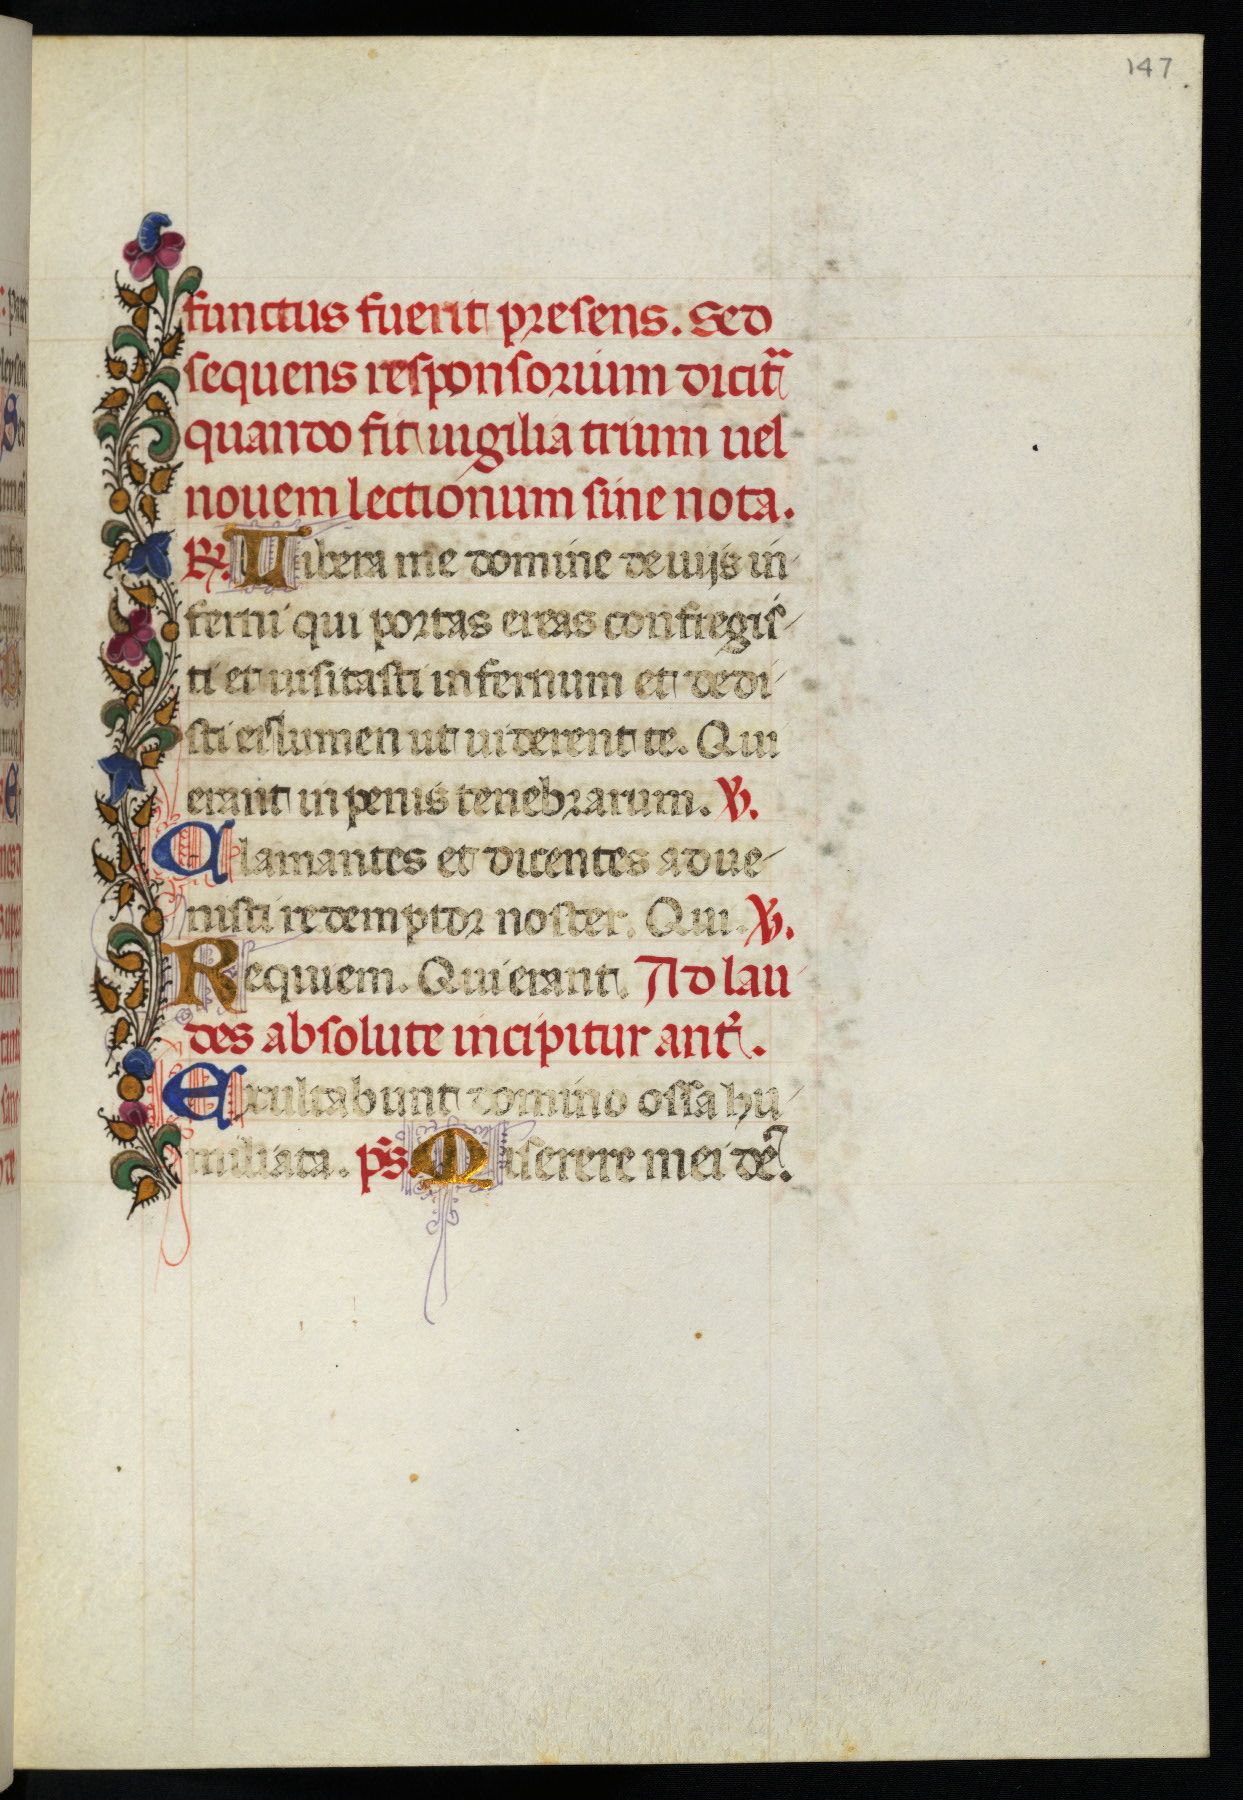 147
functus fuerit presens. Sed
sequens responsorium dicit᷑
quando fit uigilia trium uel
nouem lectionum sine nota.
℟. Libera me domine de uijs in
ferni qui portas ereas confregis
ti et uisitasti infernum et dedi
sti eis lumen ut uiderent te. Qui
erant in penis tenebrarum. ℣.
Clamantes et dicentes adue
nisti redemptor noster. Qui. ℣.
Requiem. Qui erant. Ad lau
des absolute incipitur ant̃.
Exultabunt domino ossa hu
miliata. p̃s. Miserere mei dẽ.